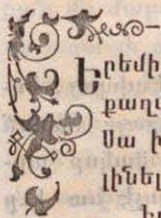 Երեմի
քաղ
Սա
լինել